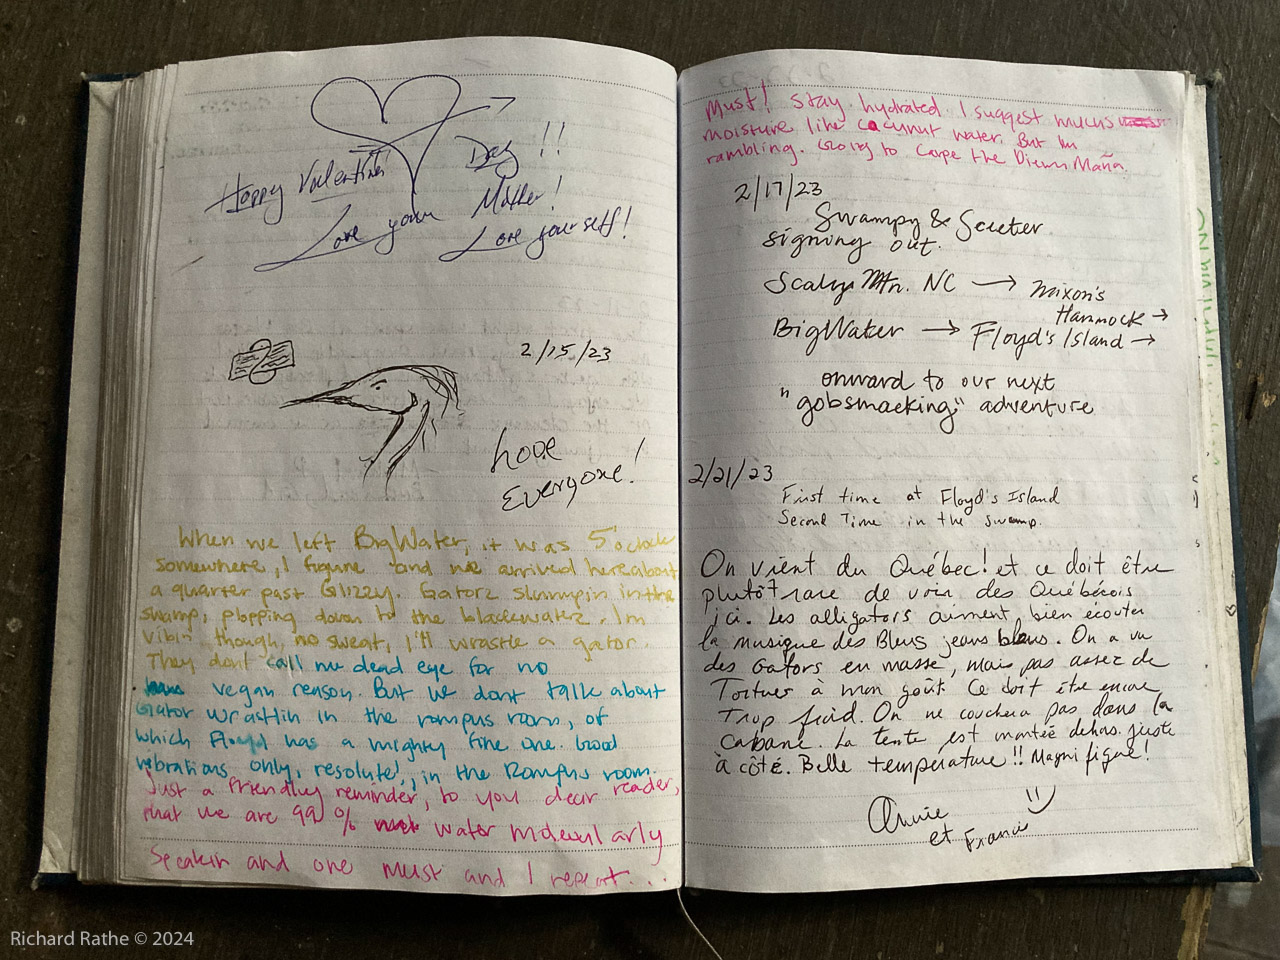 Happy Valentine's Day!!
Love your Mother!
Love yourself!
2/15/23
Love
Everyone!
When we left BigWater, it was 5 o'clock
somewhere, I figure and we arrived hereabout
a quarter past Glizzy. Gatorz slumpin in the
swamp, plopping down to the blackwaterz. Im
vibin though, no sweat, I'll wrastle a gator.
They dont call me dead eye for no
vegan reason. But we dont talk about
Gator wrastlin in the rompus room, of
which Floyd has a mighty fine one. Good
vibrations only, resolute!, in the Rompus room.
Just a friendly reminder, to you dear reader,
that we are 99% water
speakin and one must and I repeat...
Must! stay hydrated. I suggest mucus
moisture like cocunut water. But Im
rambling. Going to Carpe the Diem Maña.
2/17/23
Swampy & Scooter
signing out.
Scaly Mtn. NC → Mixon's
Hammock →
BigWater → Floyd's Island →
onward to our next
"gobsmacking" adventure
2/21/23
First time at Floyd's Island
Second Time in the swamp.
On vient du Québec! et ce doit être
plutôt rare de voir des Québécois
ici. Les alligators aiment bien écouter
la musique des Bleus jeans bleus. On a vu
des Gators en masse, mais pas assez de
Tortues à mon goût. Ce doit être encore
Trop froid. On ne couchera pas dans la
cabane. La tente est montée dehors juste
à côté. Belle température!! Magnifique!
Annie
et Francis
Richard Rathe © 2024